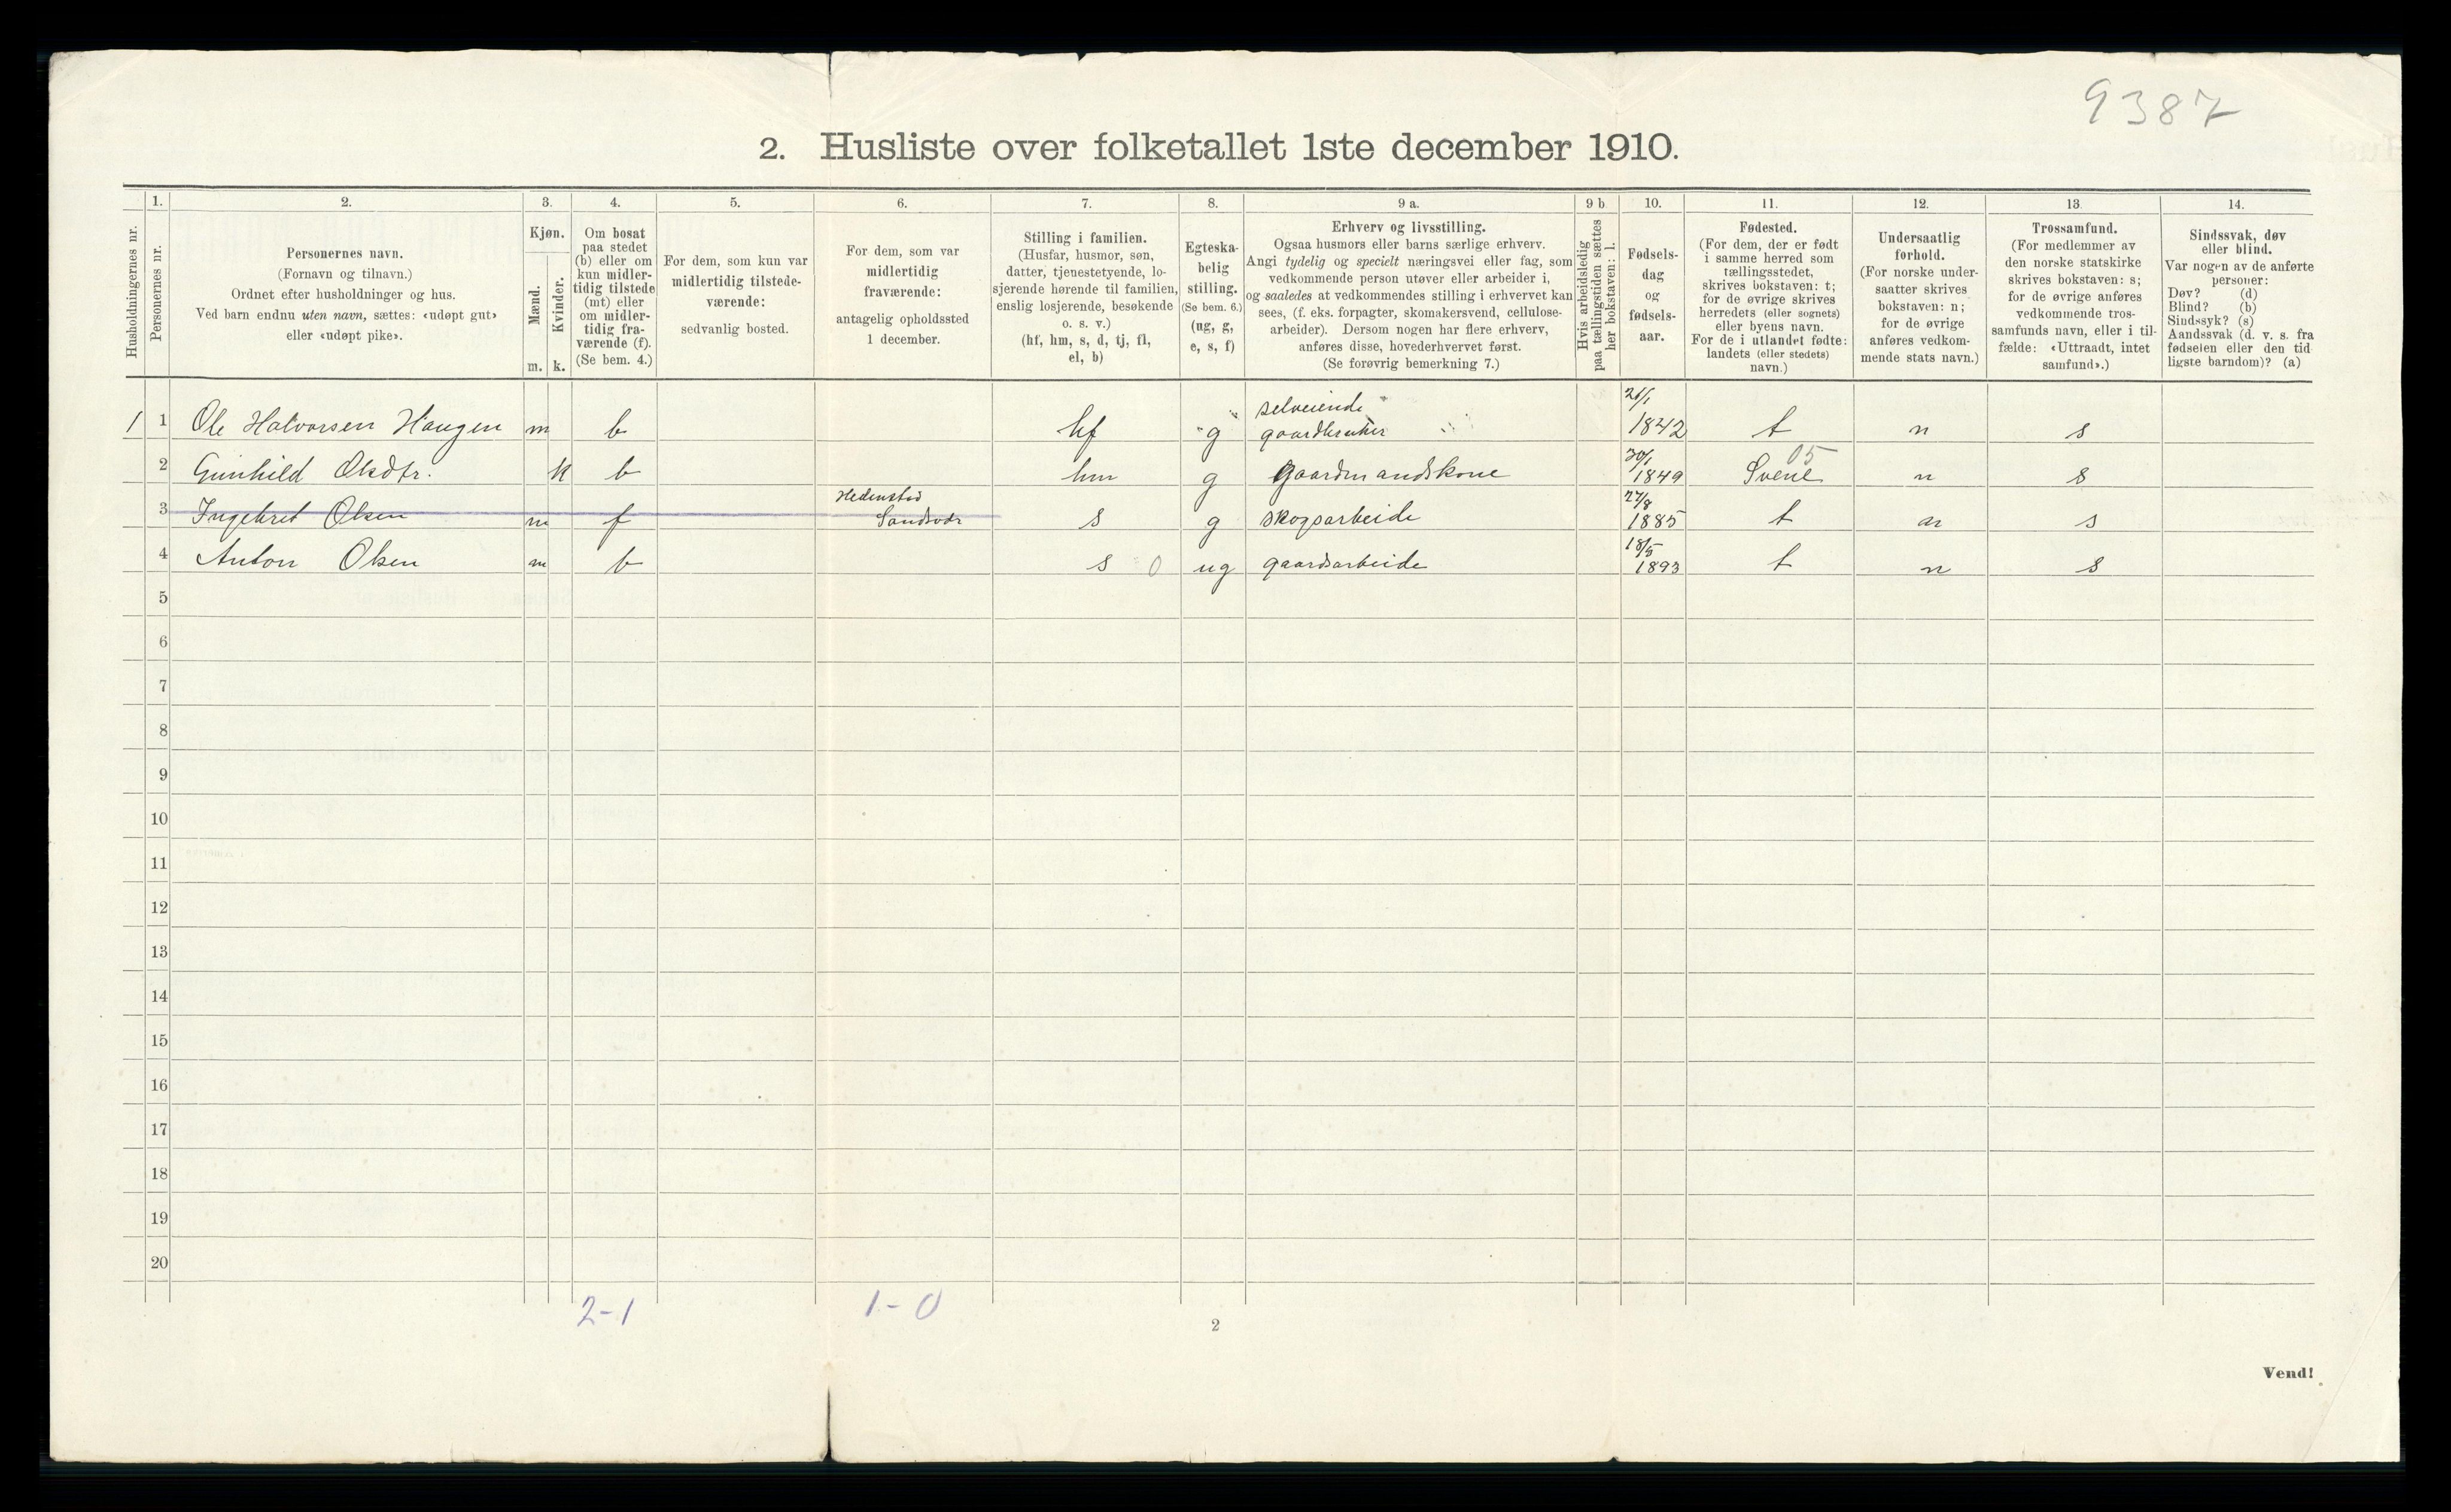 9387
2. Husliste over folketallet 1ste december 1910.
Husholdningernes nr.
1.
Personernes nr.
2.
Personernes navn.
(Fornavn og tilnavn.)
Ordnet efter husholdninger og hus.
Ved barn endnu uten navn, sættes: «udøpt gut»
eller «udøpt pike».
3.
Kjøn.
Mænd.
m.
Kvinder.
k.
4.
Om bosat
paa stedet
(b) eller om
kun midler-
tidig tilstede
(mt) eller
om midler-
tidig fra-
værende (f).
(Se bem. 4.)
5.
For dem, som kun var
midlertidig tilstede-
værende:
sedvanlig bosted.
6.
For dem, som var
midlertidig
fraværende:
antagelig opholdssted
1 december.
7.
Stilling i familien.
(Husfar, husmor, søn,
datter, tjenestetyende, lo-
sjerende hørende til familien,
enslig losjerende, besøkende
o. s. v.)
(hf, hm, s, d, tj, fl,
el, b)
8.
Egteska-
belig
stilling.
(Se bem. 6.)
(ug, g,
e, s, f)
9 a.
Erhverv og livsstilling.
Ogsaa husmors eller barns særlige erhverv.
Angi tydelig og specielt næringsvei eller fag, som
vedkommende person utøver eller arbeider i,
og saaledes at vedkommendes stilling i erhvervet kan
sees, (f. eks. forpagter, skomakersvend, cellulose-
arbeider). Dersom nogen har flere erhverv,
anføres disse, hovederhvervet først.
(Se forøvrig bemerkning 7.)
9 b
Hvis arbeidsledig
paa tællingstiden sættes
her bokstaven: l.
10.
Fødsels-
dag
og
fødsels-
aar.
11.
Fødested.
(For dem, der er født
i samme herred som
tællingsstedet,
skrives bokstaven: t;
for de øvrige skrives
herredets (eller sognets)
eller byens navn.
For de i utlandet fødte:
landets (eller stedets)
navn.)
12.
Undersaatlig
forhold.
(For norske under-
saatter skrives
bokstaven: n;
for de øvrige
anføres vedkom-
mende stats navn.)
13.
Trossamfund.
(For medlemmer av
den norske statskirke
skrives bokstaven: s;
for de øvrige anføres
vedkommende tros-
samfunds navn, eller i til-
fælde: «Uttraadt, intet
samfund».)
14.
Sindssvak, døv
eller blind.
Var nogen av de anførte
personer:
Døv? (d)
Blind? (b)
Sindssyk? (s)
Aandssvak (d. v. s. fra
fødselen eller den tid
ligste barndom)? (a)
1 1 Ole Halvorsen Haugen m b hf g selveiende gaardbruker 21/1 1842 t n s
2 Gunhild Olsdtr. k b hm g Gaardmandskone 30/1 1849 Svene 05 n s
3 Ingebret Olsen m f Hedenstad Sandsvær s g skogsarbeide 27/8 1885 t n s
4 Anton Olsen m b s 0 ug gaardsarbeide 18/5 1893 t n s
5
6
7
8
9
10
11
12
13
14
15
16
17
18
19
20
2-1 1-0
2
Vend!